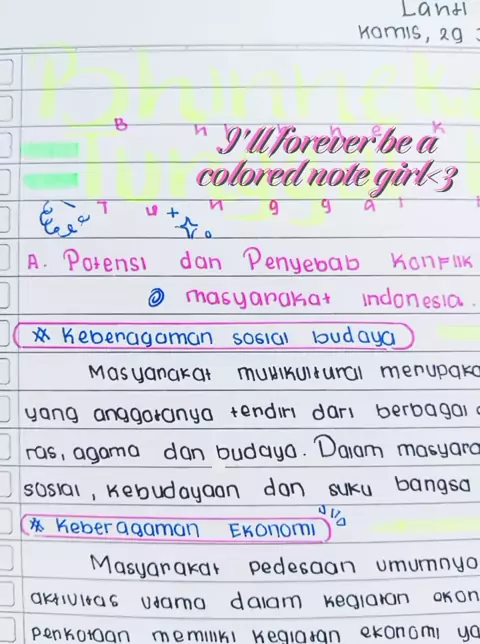 Lanti
Kamis, 29
Bhinneka
B h i n n e k
I'll forever be a
colored note girl<3
Tunggal
T u n g g a l
A. Potensi dan Penyebab Konflik
@ masyarakat indonesia.
* Keberagaman sosial budaya
Masyarakat multikultural merupaka
yang anggotanya terdiri dari berbagai
ras, agama dan budaya. Dalam masyara
sosial, kebudayaan dan suku bangsa
* Keberagaman Ekonomi
Masyarakat pedesaan umumnya
aktivitas utama dalam kegiatan ekon
perkotaan memiliki kegiatan ekonomi ya